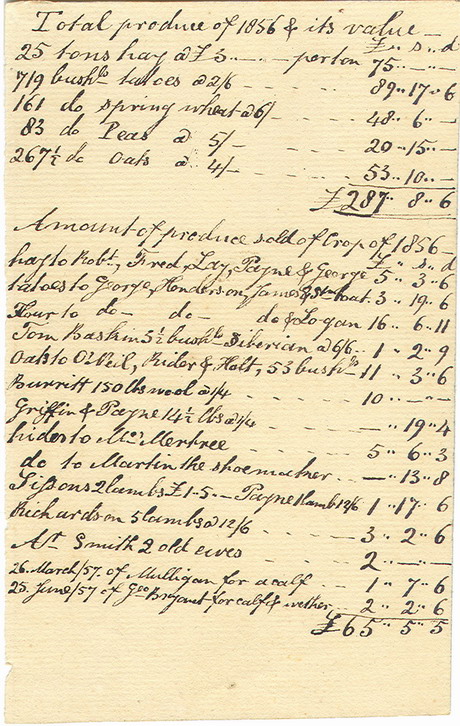 Total produce of 1856 & its value —
£ " s " d
25 tons hay a £3 .. — .. — per ton 75 " — " —
719 bushls tatoes a 2/6 - - - - 89 " 17 " 6
161 do spring wheat a 6/ - - - 48 " 6 " —
83 do Peas a 5/- - - - - 20 " 15 " —
267½ do Oats a 4/- - - - - 53 " 10 " —
£287 " 8 " 6
Amount of produce sold of Crop of 1856 —
£ " s " d
hay to Robt, Fred, Lay, Payne & George 5 " 3 " 6
tatoes to George, Henderson, James & boat 3 " 19 " 6
Flour to do- do- do & Logan 16 " 6 " 11
Tom Baskin 5½ bushls Siberian a 6/6 - 1 " 2 " 9
Oats to O'Neil, Rider & Holt, 53 bushls - 11 " 3 " 6
Burritt 150 lbs wool a 1/4 - - - 10 " — " —
Griffin & Payne 14½ lbs a 1/4 - - - — " 19 " 4
hides to - - - 5 " 6 " 3
do to Martin the shoemaker - - - — " 13 " 8
Sissons 2 lambs £1-5-- Payne 1 lamb 12/6 1 " 17 " 6
Richardson 5 lambs a 12/6 - - - 3 " 2 " 6
Smith 2 old ewes - - - 2 " — " —
26. March/57. of Mulligan for a calf - - - 1 " 7 " 6
25. June/57 of Geo Bryant for calf & wether - - 2 " 2 " 6
£65 " 5 " 5